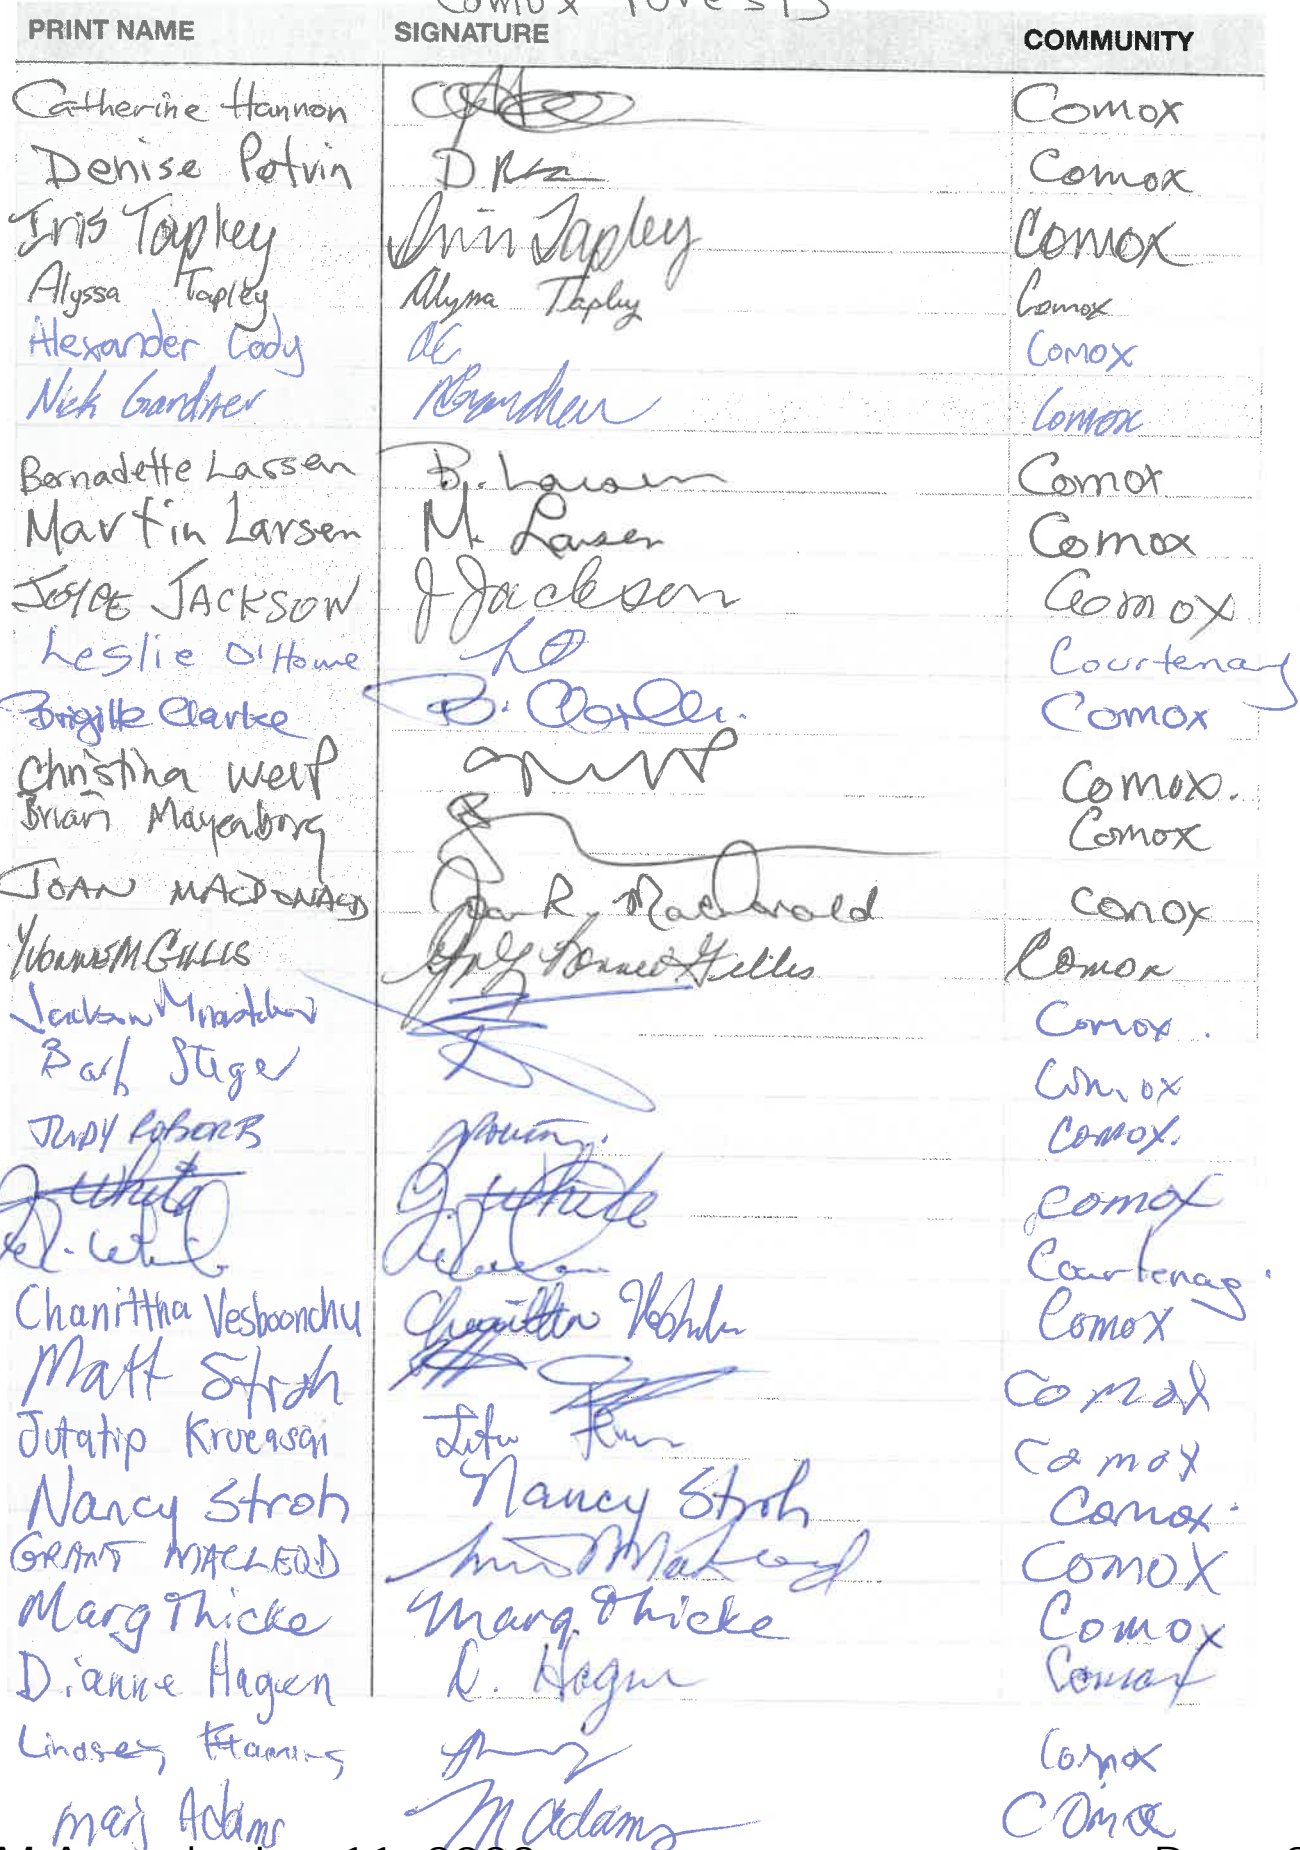 Comox Forests
PRINT NAME SIGNATURE COMMUNITY
Catherine Hannon Comox
Denise Potvin D Comox
Iris Tapley Iris Tapley Comox
Alyssa Tapley Alyssa Tapley Comox
Alexander Cody AC Comox
Nick Gardner NGardner Comox
Bernadette Larsen B. Larsen Comox
Martin Larsen M. Larsen Comox
JOYCE JACKSON J Jackson Comox
Leslie O'Horne LO Courtenay
Brigitte Clarke B. Clarke. Comox
Christina Welf Comox.
Brian Mayenborg Comox
JOAN MACDONALD Joan R. MacDonald Comox
YVONNE M GILLIS Yvonne Gillis Comox
Comox.
Barb Steger Comox
JUDY ROBERTS Comox.
White G. White Comox
Courtenay.
Chanittha Vesboonchu Chanittha Comox
Matt Stroh Comox
Jutatip Krueasan Comox
Nancy Stroh Nancy Stroh Comox.
GRANT MACLEOD MacLeod COMOX
Marg Thicke Marg Thicke Comox
Dianne Hagen D. Hagen Comox
Lindsey Comox
Marj Adams M Adams Comox